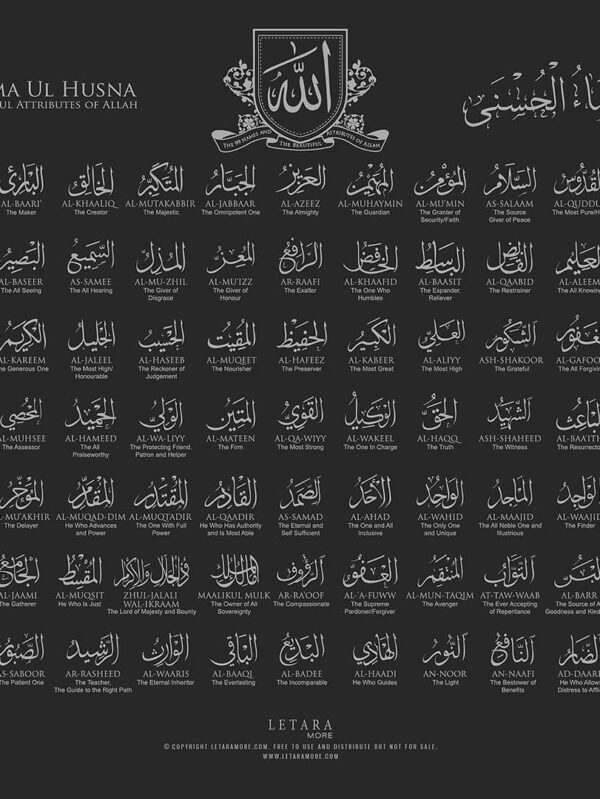 MA UL HUSNA
UL ATTRIBUTES OF ALLAH
الله
THE 99 NAMES AND THE BEAUTIFUL ATTRIBUTES OF ALLAH
الْحُسْنَى
البَارِئ الخَالِق المُتَكَبِّر الجَبَّار العَزِيز المُهَيْمِن المُؤْمِن السَّلَام القُدُّوس
AL-BAARI' AL-KHAALIQ AL-MUTAKABBIR AL-JABBAAR AL-AZEEZ AL-MUHAYMIN AL-MU'MIN AS-SALAAM AL-QUDDU
The Maker The Creator The Majestic The Omnipotent One The Almighty The Guardian The Granter of The Source The Most Pure/H
Security/Faith Giver of Peace
البَصِير السَّمِيع المُذِلّ المُعِزّ الرَّافِع الخَافِض البَاسِط القَابِض العَلِيم
AL-BASEER AS-SAMEE AL-MU-ZHIL AL-MU'IZZ AR-RAAFI AL-KHAAFID AL-BAASIT AL-QAABID AL-ALEEM
The All Seeing The All Hearing The Giver of The Giver of The Exalter The One Who The Expander, The Restrainer The All Knowing
Disgrace Honour Humbles Reliever
الكَرِيم الجَلِيل الحَسِيب المُقِيت الحَفِيظ الكَبِير العَلِيّ الشَّكُور الغَفُور
AL-KAREEM AL-JALEEL AL-HASEEB AL-MUQEET AL-HAFEEZ AL-KABEER AL-ALIYY ASH-SHAKOOR AL-GAFOO
The Generous One The Most High/ The Reckoner of The Nourisher The Preserver The Most Great The Most High The Grateful The All Forgivin
Honourable Judgement
المُحْصِي الحَمِيد الوَلِيّ المَتِين القَوِيّ الوَكِيل الحَقّ الشَّهِيد البَاعِث
AL-MUHSEE AL-HAMEED AL-WA-LIYY AL-MATEEN AL-QA-WIYY AL-WAKEEL AL-HAQQ ASH-SHAHEED AL-BAA'ITH
The Assessor The All The Protecting Friend, The Firm The Most Strong The One In Charge The Truth The Witness The Resurrecto
Praiseworthy Patron and Helper
المُؤَخِّر المُقَدِّم المُقْتَدِر القَادِر الصَّمَد الأَحَد الوَاحِد المَاجِد الوَاجِد
AL-MU'AKHIR AL-MUQAD-DIM AL-MUQTADIR AL-QAADIR AS-SAMAD AL-AHAD AL-WAHID AL-MAAJID AL-WAAJID
The Delayer He Who Advances The One With Full He Who Has Authority The Eternal and The One and All The Only One The All Noble One and The Finder
and Power Power and Is Most Able Self Sufficient Inclusive and Unique Illustrious
الجَامِع المُقْسِط ذُو الجَلَالِ وَالإِكْرَام مَالِكُ المُلْك الرَّؤُوف العَفُوّ المُنْتَقِم التَّوَّاب البَرّ
AL-JAAMI AL-MUQSIT ZHUL-JALALI MAALIKUL MULK AR-RA'OOF AL-'A-FUWW AL-MUN-TAQIM AT-TAW-WAAB AL-BARR
WAL-IKRAAM
The Gatherer He Who Is Just The Lord of Majesty and Bounty The Owner of All The Compassionate The Supreme The Avenger The Ever Accepting The Source of A
Sovereignty Pardoner/Forgiver of Repentance Goodness and Kind
الصَّبُور الرَّشِيد الوَارِث البَاقِي البَدِيع الهَادِي النُّور النَّافِع الضَّار
AS-SABOOR AR-RASHEED AL-WAARIS AL-BAAQI AL-BADEE AL-HAADI AN-NOOR AN-NAAFI AD-DAARR
The Patient One The Teacher, The Eternal Inheritor The Everlasting The Incomparable He Who Guides The Light The Bestower of He Who Allow
The Guide to the Right Path Benefits Distress to Afflic
LETARA
MORE
© COPYRIGHT LETARAMORE.COM. FREE TO USE AND DISTRIBUTE BUT NOT FOR SALE.
WWW.LETARAMORE.COM